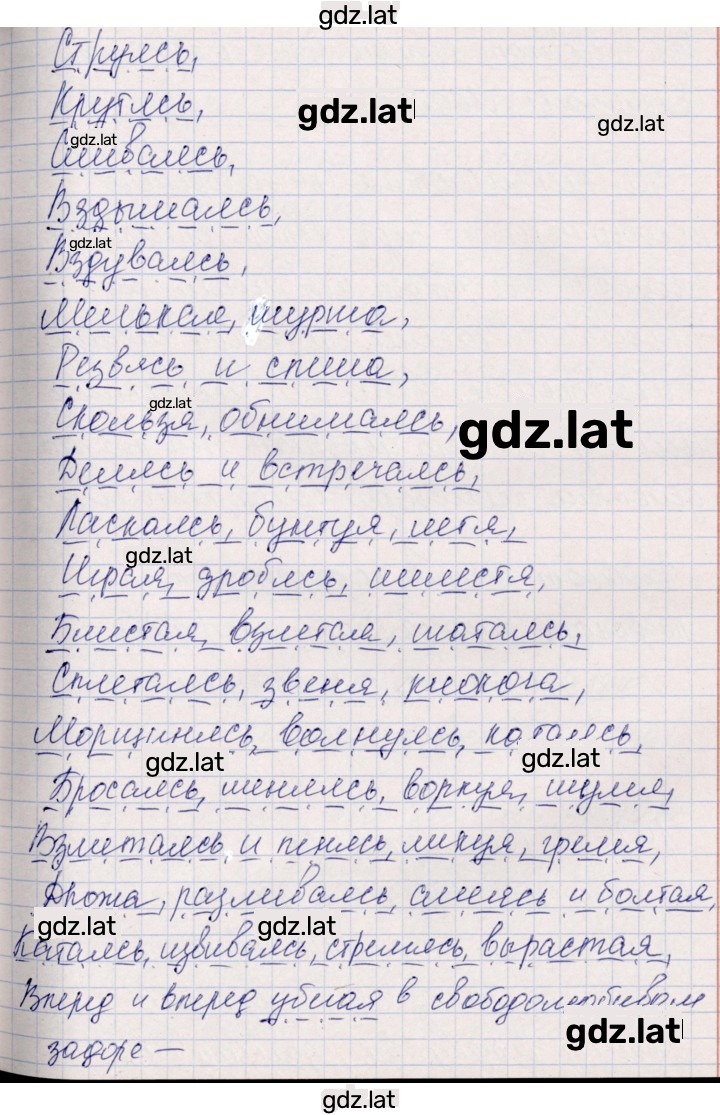 gdz.lat
Струясь,
Крутясь,
gdz.lat
gdz.lat
gdz.lat
Сливаясь,
Вздымаясь,
gdz.lat
Вздуваясь,
Мелькая, шурша,
Резвясь и спеша,
gdz.lat
Скользя, обнимаясь,
gdz.lat
Делясь и встречаясь,
Ласкаясь, бунтуя, летя,
gdz.lat
Играя, дробясь, шелестя,
Блистая, взлетая, шатаясь,
Сплетаясь, звеня, клокоча,
Морщинясь, волнуясь, катаясь,
gdz.lat
gdz.lat
Бросаясь, меняясь, воркуя, шумя,
Взметаясь и пенясь, ликуя, гремя,
Дрожа, разливаясь, смеясь и болтая,
gdz.lat
gdz.lat
Катаясь, извиваясь, стремясь, вырастая,
Вперед и вперед убегая в свободолюбивом
gdz.lat
задоре —
gdz.lat